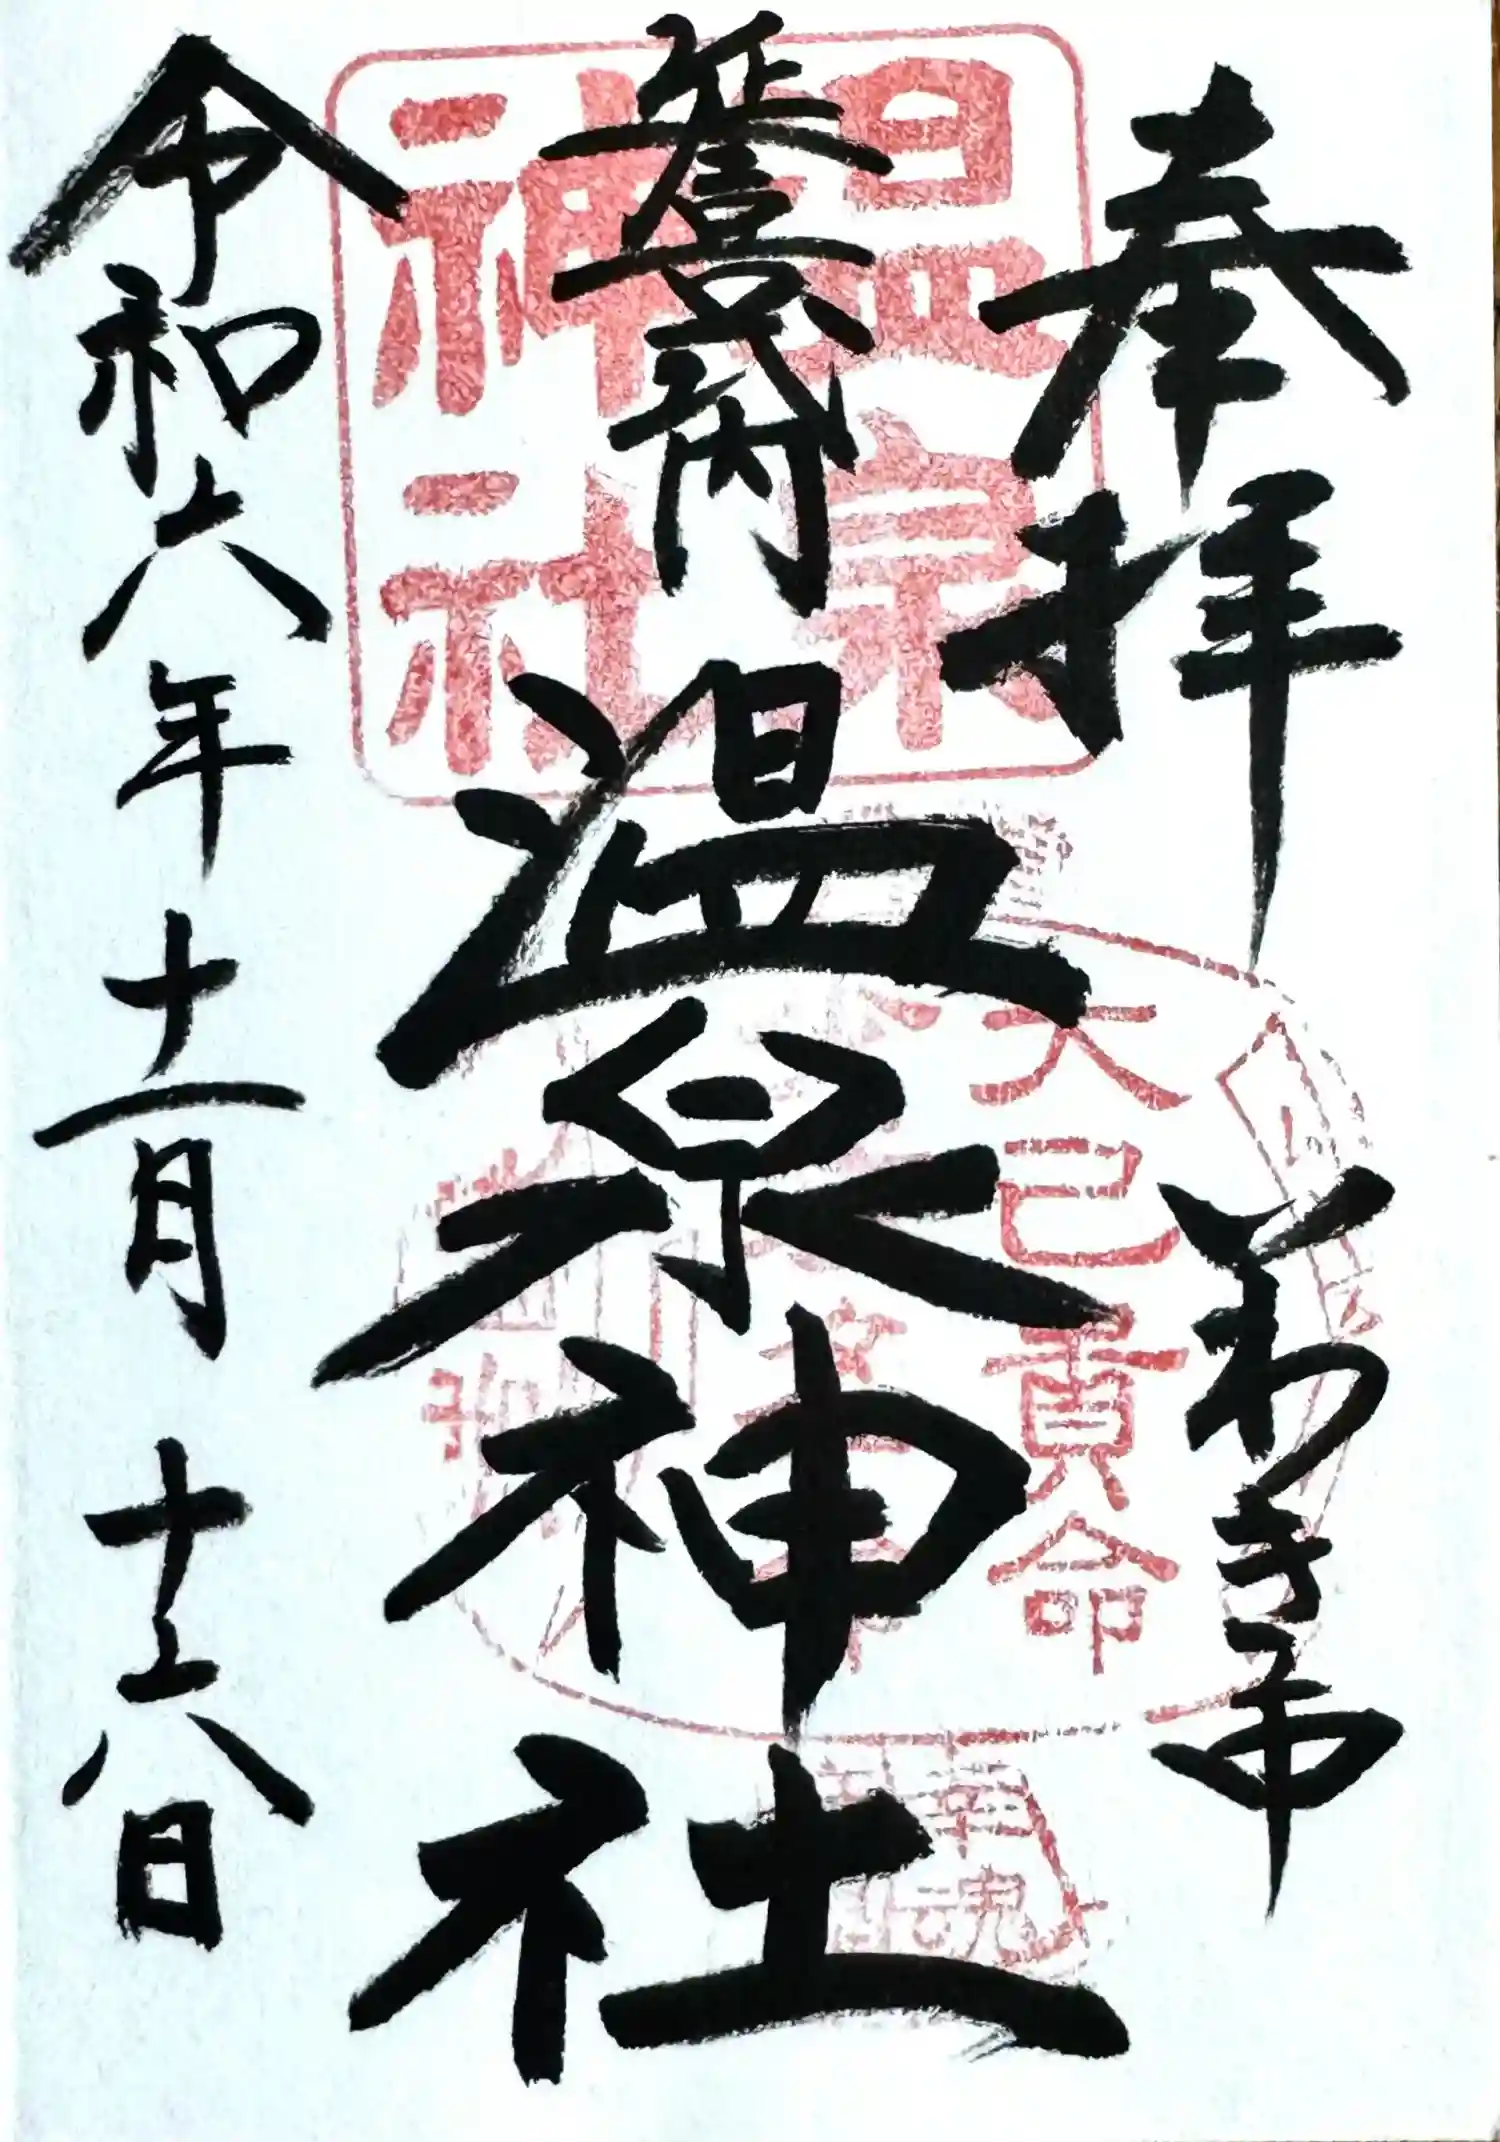 奉拝
いわき市
延喜式内
温泉神社
令和六年十一月十六日
温泉
神社
大己貴命